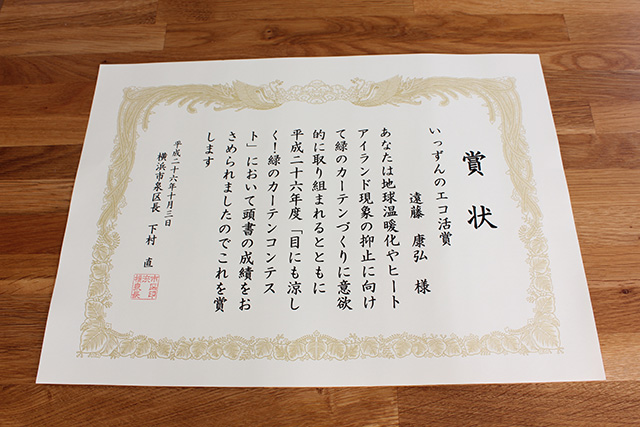 賞状
いっずんのエコ活賞
遠藤 康弘 様
あなたは地球温暖化やヒート
アイランド現象の抑止に向け
て緑のカーテンづくりに意欲
的に取り組まれるとともに
平成二十六年度「目にも涼し
く!緑のカーテンコンテス
ト」において頭書の成績をお
さめられましたのでこれを賞
します
平成二十六年十月三日
横浜市泉区長 下村 直